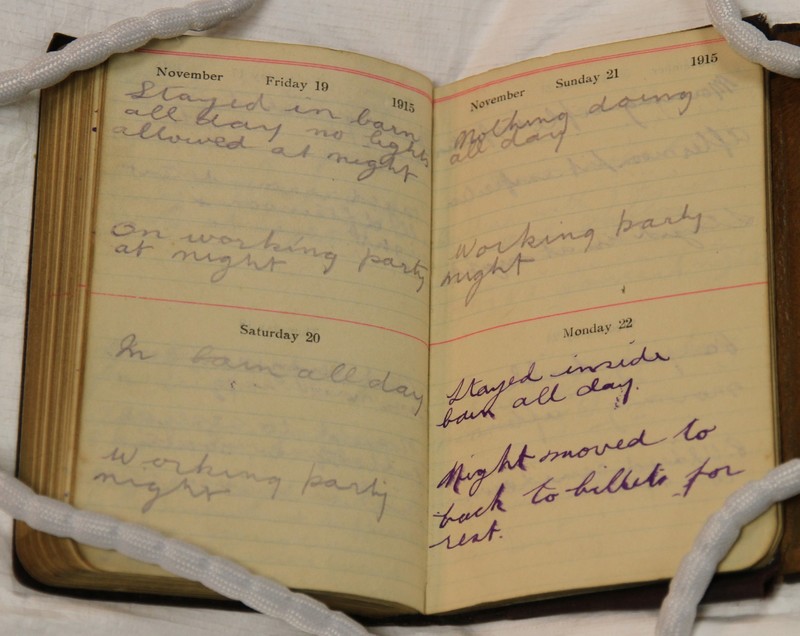 November Friday 19 1915
Stayed in barn
all day no lights
allowed at night
On working party
at night
Saturday 20
In barn all day
Working party
night
November Sunday 21 1915
Nothing doing
all day
Working party
night
Monday 22
Stayed inside
barn all day.
Night moved to
back to billets for
rest.